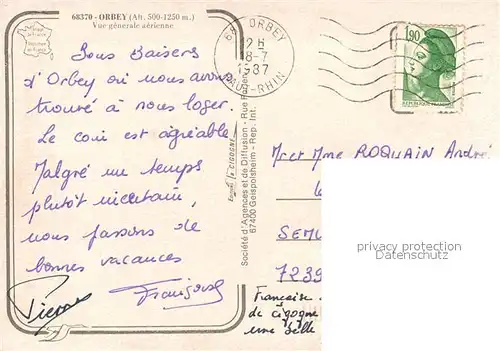 68370 - ORBEY (Alt. 500-1250 m.)
Vue générale aérienne
Bons Baisers
d'Orbey où nous avons
trouvé à nous loger.
Le coin est agréable
Malgré un temps
plutôt incertain,
nous passons de
bonnes vacances
Françoise
Pierre
Société d'Agences et de Diffusion - Rue
67400 Geispolsheim - Rep. Int.
68 ORBEY
12H
8-7
1987
HAUT-RHIN
1,90
REPUBLIQUE FRANCAISE
Mr et Mme ROQUAIN André
SEMU
7239
privacy protection
Service
Française
de cigogne
une belle